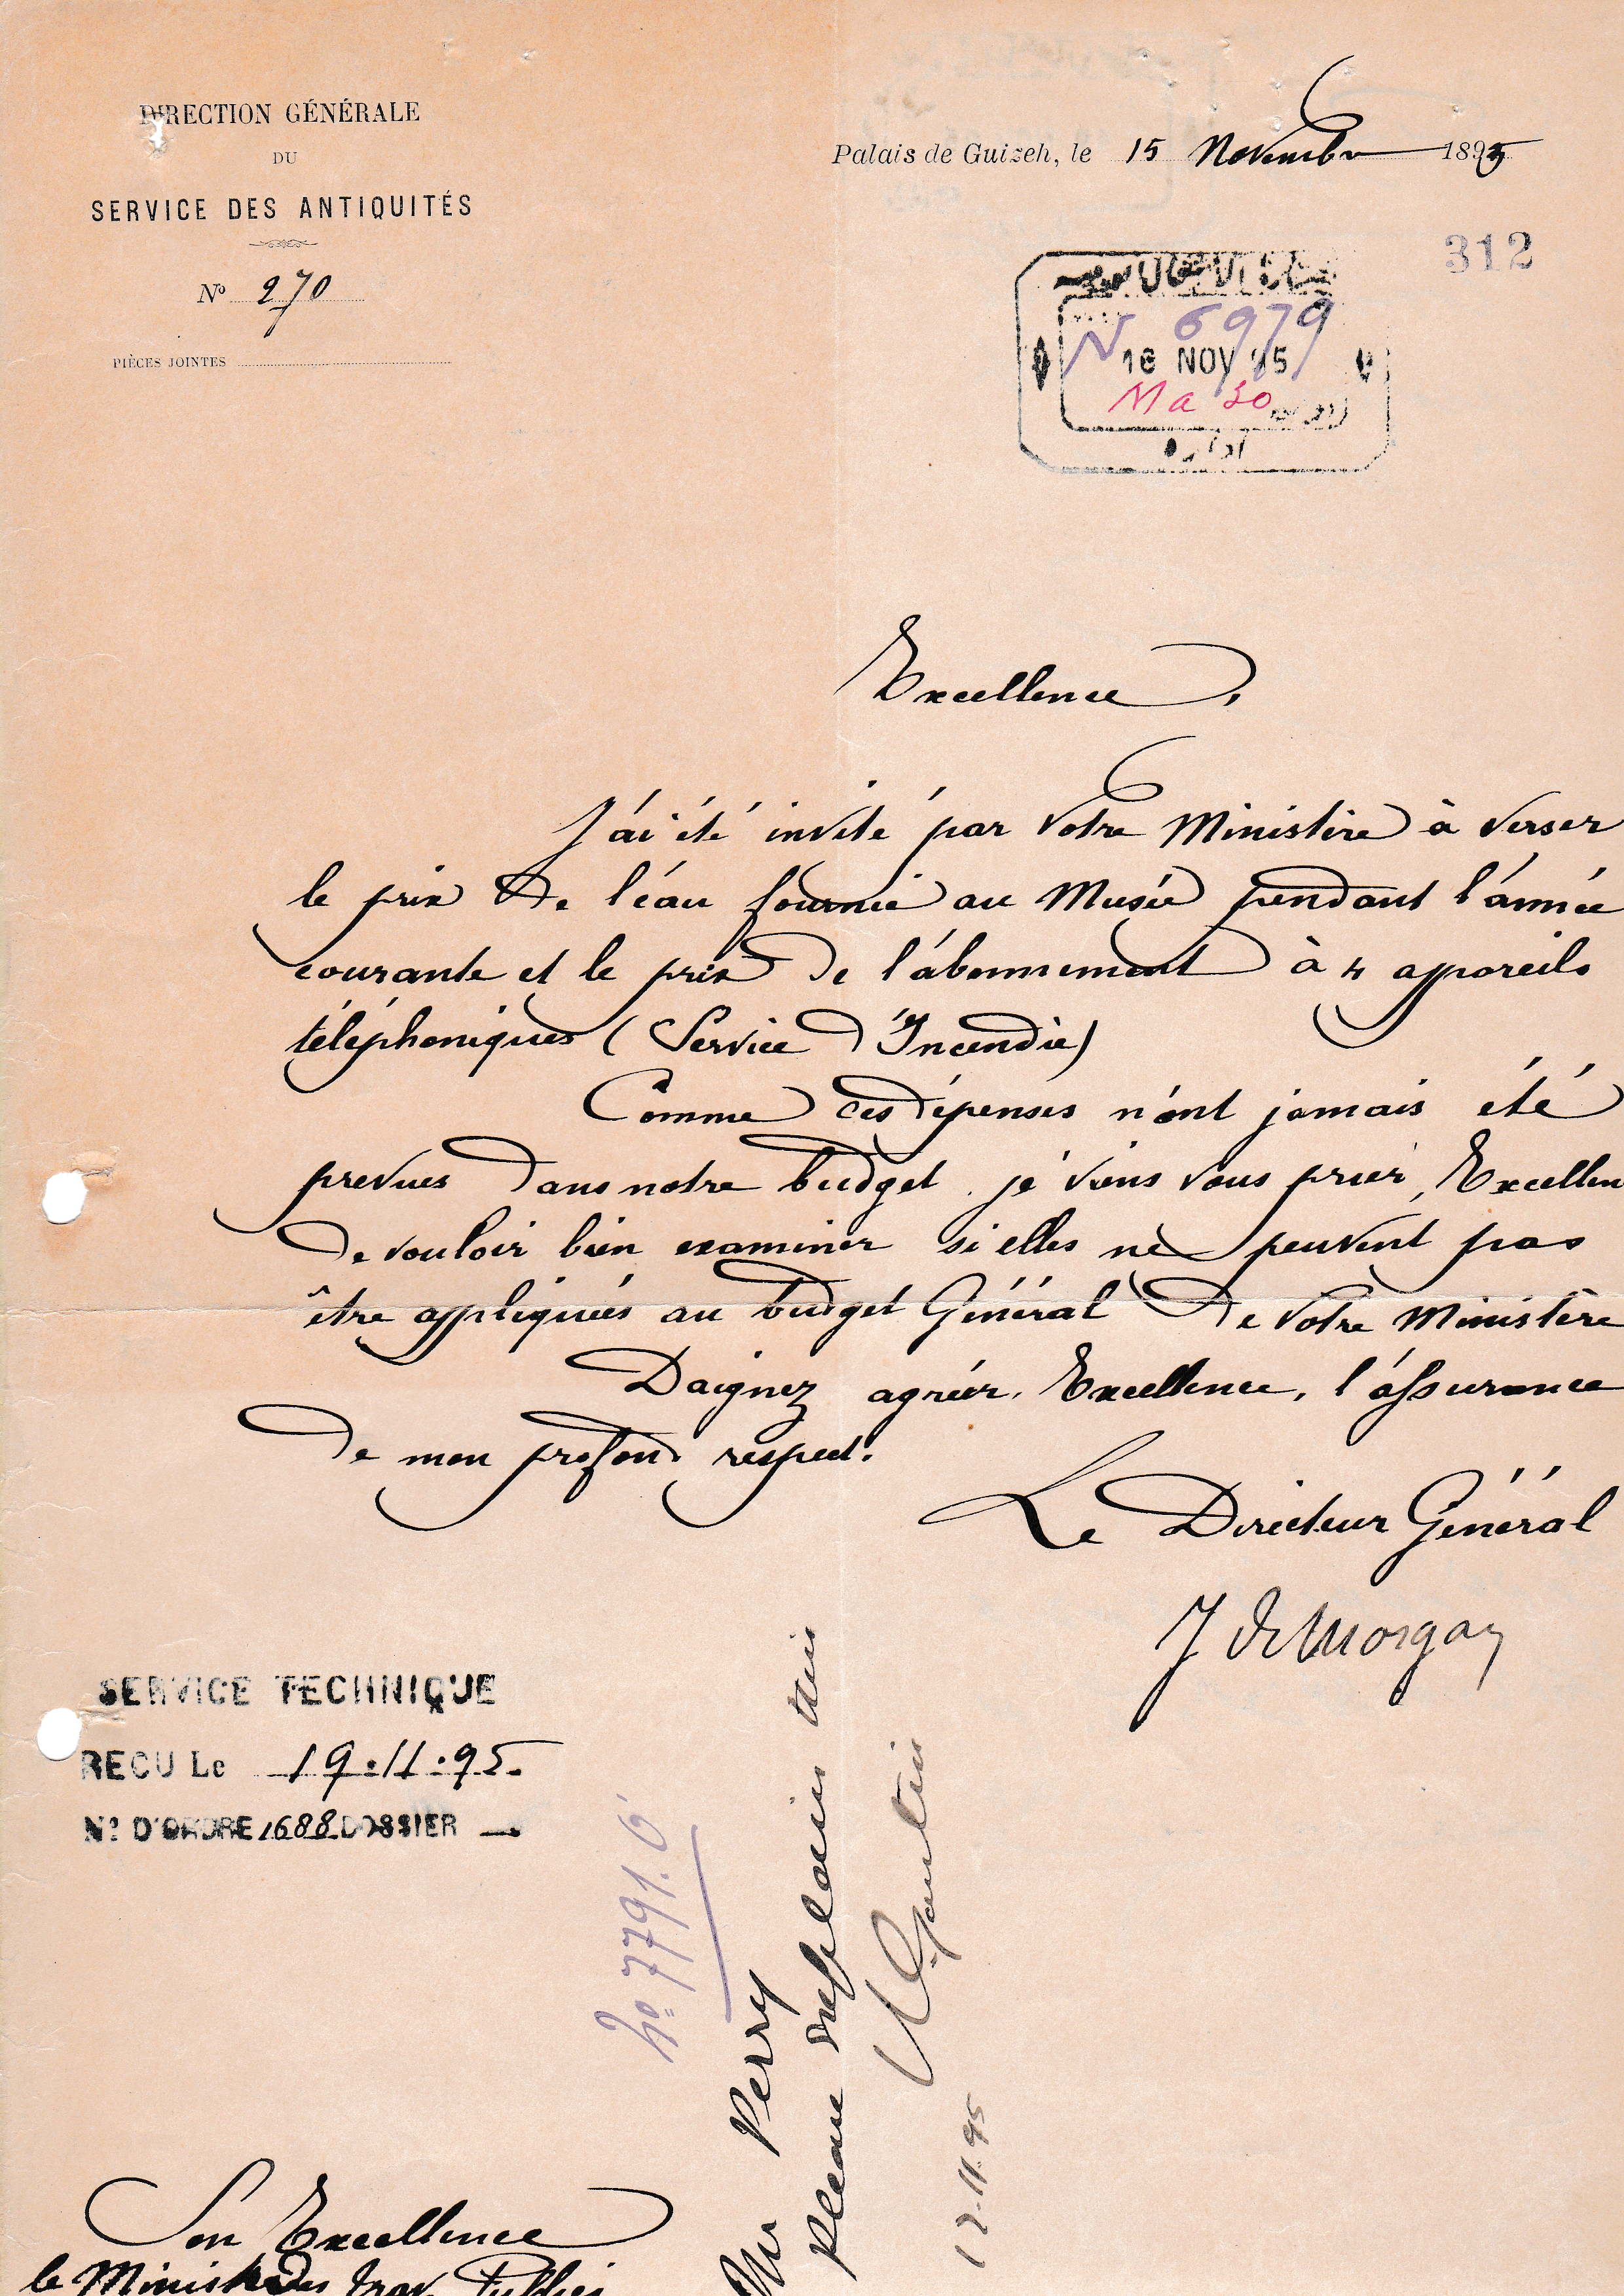 DIRECTION GÉNÉRALE
DU
SERVICE DES ANTIQUITÉS
Nº 270
PIÈCES JOINTES
Palais de Guizeh, le 15 Novembre 1895
312
N 6979
16 NOV 95
Ma 30
ادارة
Excellence,
J'ai été invité par Votre Ministère à verser
le prix de l'eau fournie au Musée pendant l'année
courante et le prix de l'abonnement à 4 appareils
téléphoniques (Service d'Incendie)
Comme ces dépenses n'ont jamais été
prevues dans notre budget je viens vous prier, Excellen
de vouloir bien examiner si elles ne peuvent pas
être appliquées au budget Général de Votre Ministère
Daignez agréer, Excellence, l'assurance
de mon profond respect.
Le Directeur Général
J de Morgan
SERVICE TECHNIQUE
RECU Le 19.11.95.
Nº D'ORDRE 1688 DOSSIER
Nº 7791.6
Mr Perry
Please explain this
17.11.95
Son Excellence
le Ministre des Trav. Publics